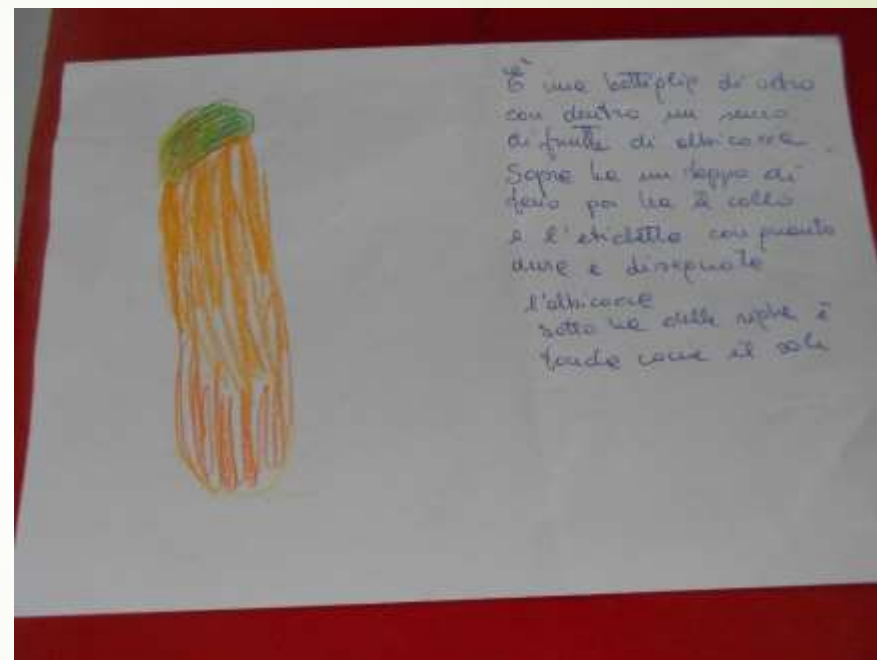 È una bottiglia di vetro
con dentro un succo
di frutta di albicocca.
Sopra ha un tappo di
ferro poi ha il collo
e l'etichetta con quanto
dura e disegnate
l'albicocche
sotto ha delle righe è
tonda come il sole